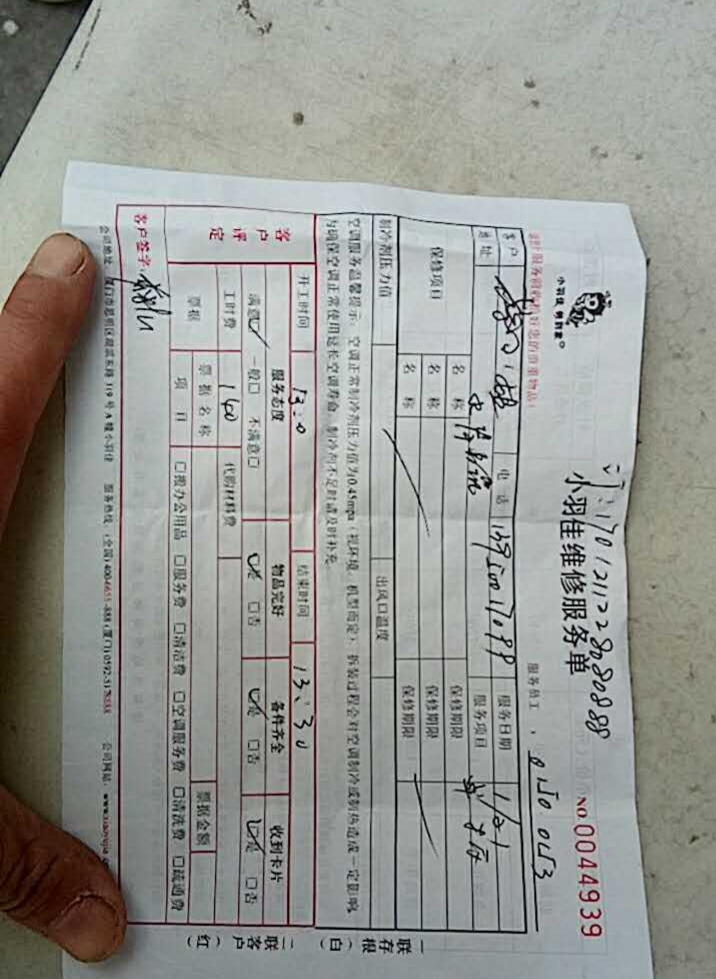 小羽佳 韩姆象
17012112280808888
小羽佳维修服务单
NO.0044939
服务员工
0150 0153
客户
电话
服务日期
1/21
地址
服务项目
保修项目
名称
保修期限
名称
保修期限
名称
保修期限
制冷剂压力值
出风口温度
空调服务温馨提示：空调正常制冷剂压力值为0.45mpa（视环境、机型而定），拆装过程会对空调制冷或制热造成一定影响，
为确保空调正常使用延长空调寿命，制冷剂不足时请及时补充。
客户评定
开工时间
13:0
结束时间
13:30
服务态度
物品完好
备件齐全
收到卡片
满意☑ 一般□ 不满意□
☑是 □否
☑是 □否
☑是 □否
工时费
140
代购材料费
票据
票据名称
票据金额
项目
□搬办公用品 □服务费 □清洁费 □空调服务费 □清洗费 □疏通费
客户签字：
公司地址：厦门市思明区湖滨东路319号A幢小羽佳 服务热线：(全国)4004655-888 (厦门)0592-5178888 公司网站：www.xiaoyujia.com
一联存根（白）
二联客户（红）